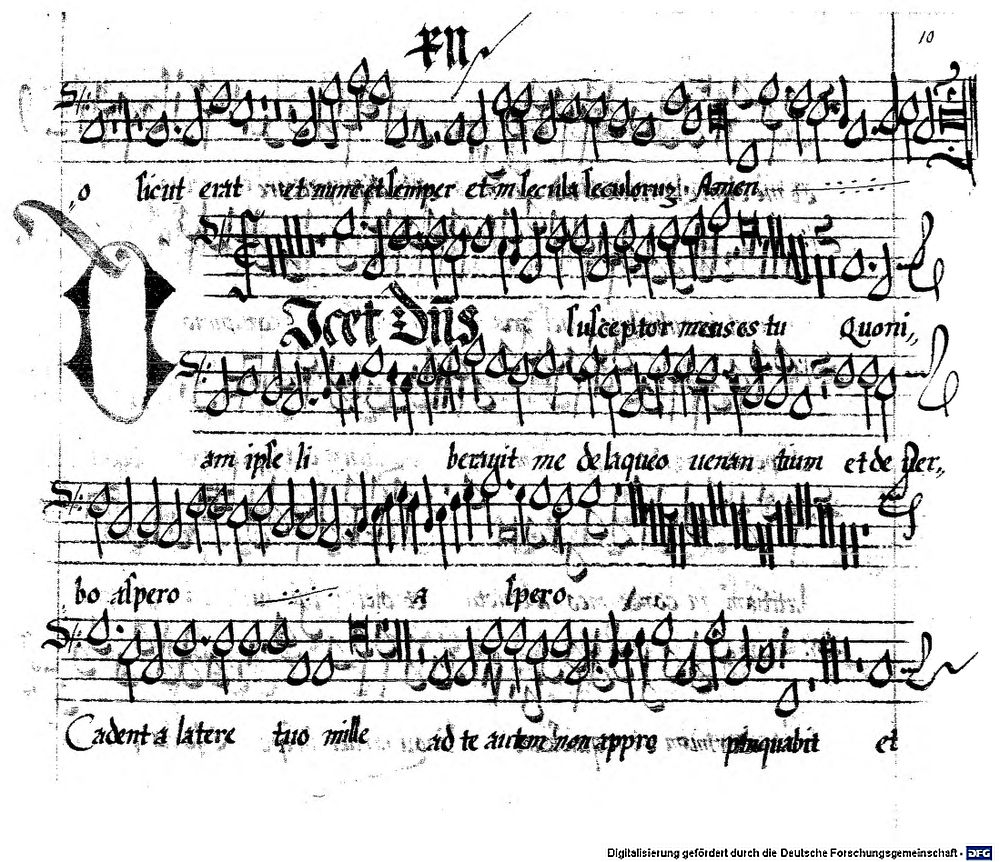 XII.
10
o sicut erat et nunc et semper et in secula seculorum. Amen
Dicet Dn̄s susceptor meus es tu Quoni,,
am ipse li beravit me de laqueo venan tium et de ver,,
bo aspero a spero
Cadent a latere tuo mille ad te autem non appro pinquabit et
Digitalisierung gefördert durch die Deutsche Forschungsgemeinschaft - DFG